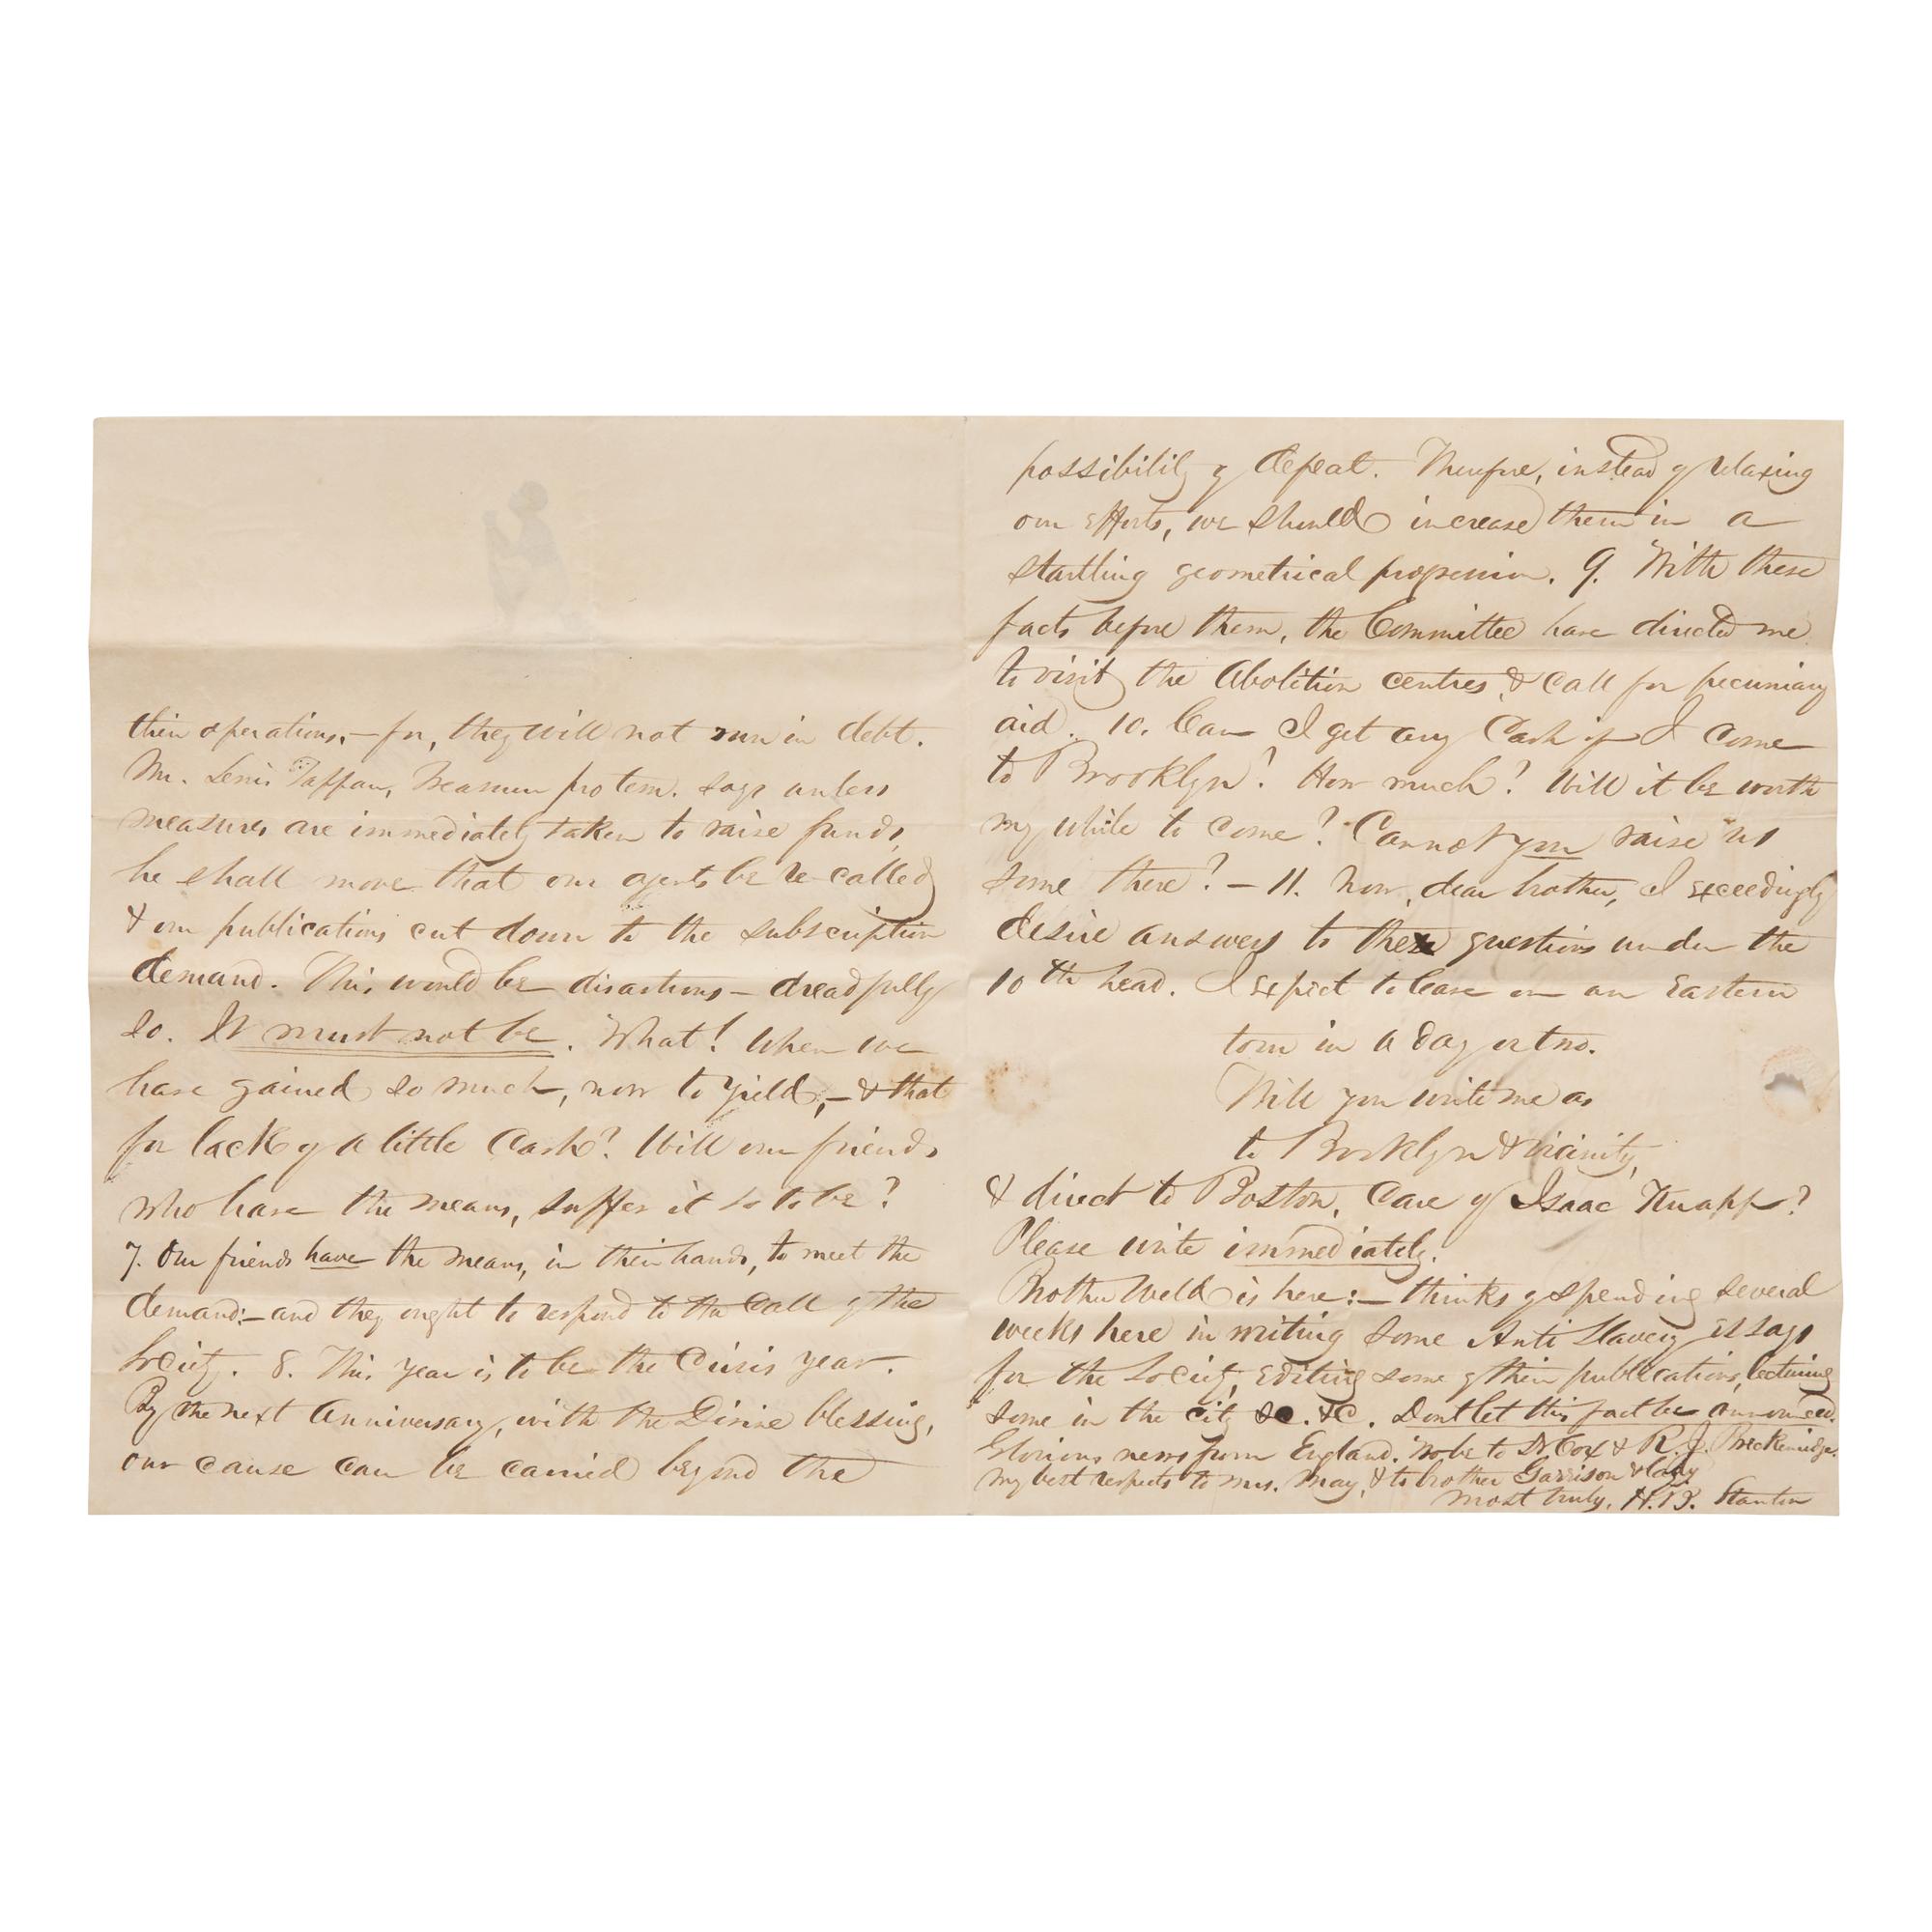 their operations,—for, they will not run in debt.
Mr. Lewis Tappan, Treasurer pro tem. says unless
measures are immediately taken to raise funds,
he shall move that our agents be re-called
& our publications cut down to the subscription
demand. This would be disastrous—dreadfully
so. It must not be. What! When we
have gained so much, now to yield,—& that
for lack of a little Cash? Will our friends
who have the means, suffer it so to be?
7. Our friends have the means, in their hands, to meet the
demand:—and they ought to respond to the Call of the
Society. 8. This year is to be the Crisis year.
By the next Anniversary, with the Divine blessing,
our cause can be carried beyond the
possibility of defeat. Therefore, instead of relaxing
our efforts, we should increase them in a
startling geometrical progression. 9. With these
facts before them, the Committee have directed me
to visit the Abolition centres, & call for pecuniary
aid. 10. Can I get any Cash if I come
to Brooklyn? How much? Will it be worth
my while to come? Cannot you raise us
some there?—11. Now, dear brother, I exceedingly
desire answers to these questions under the
10th head. I expect to leave on an Eastern
tour in a day or two.
Will you write me as
to Brooklyn & vicinity,
& direct to Boston, Care of Isaac Knapp?
Please write immediately.
Brother Weld is here:—thinks of spending several
weeks here in writing some Anti Slavery essays
for the Society, editing some of their publications, lecturing
some in the city &c. &c. Dont let this fact be announced.
Glorious news from England. Wo be to Dr. Cox & R. J. Breckenridge.
My best respects to Mrs. May, & to brother Garrison & lady
Most truly, H. B. Stanton